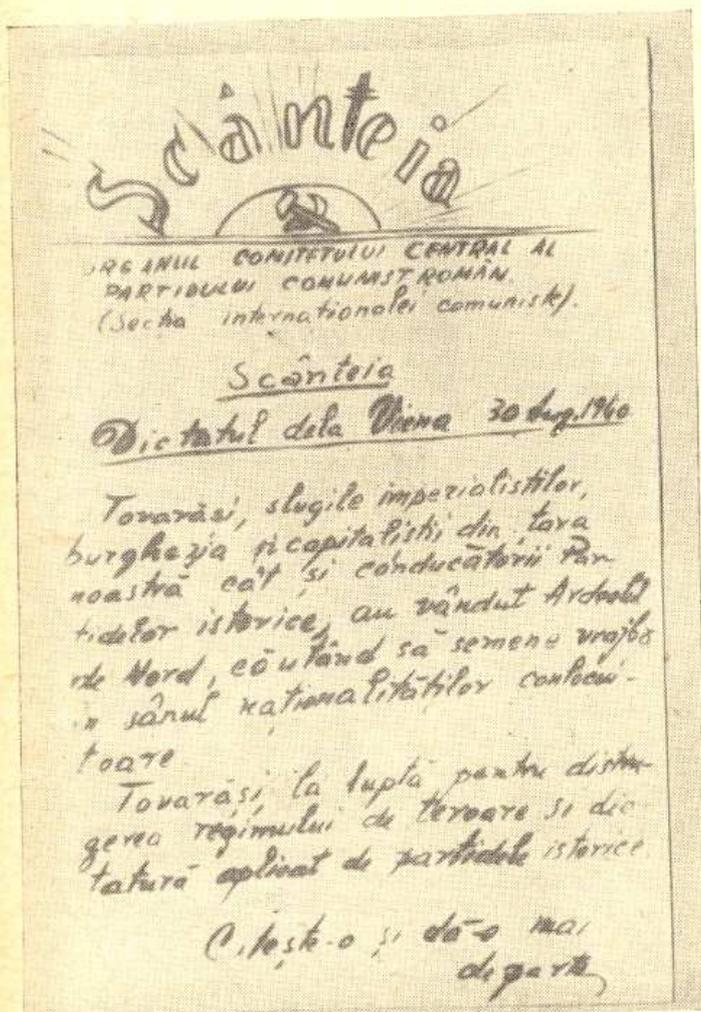 Scânteia
ORGANUL COMITETULUI CENTRAL AL
PARTIDULUI COMUNIST ROMÂN.
(Secția internaționalei comuniste).
Scânteia
Dictatul dela Viena 30 Aug. 1940
Tovarăși, slugile imperialistilor,
burghezia și capitalistii din țara
noastră cât și conducătorii Par-
tidelor istorice, au vândut Ardealul
de Nord, căutând să semene vrajba
în sânul naționalităților conlocui-
toare
Tovarăși, la luptă pentru distru-
gerea regimului de teroare si dic-
tatură aplicat de partidele istorice.
Citește-o și dă-o mai
departe